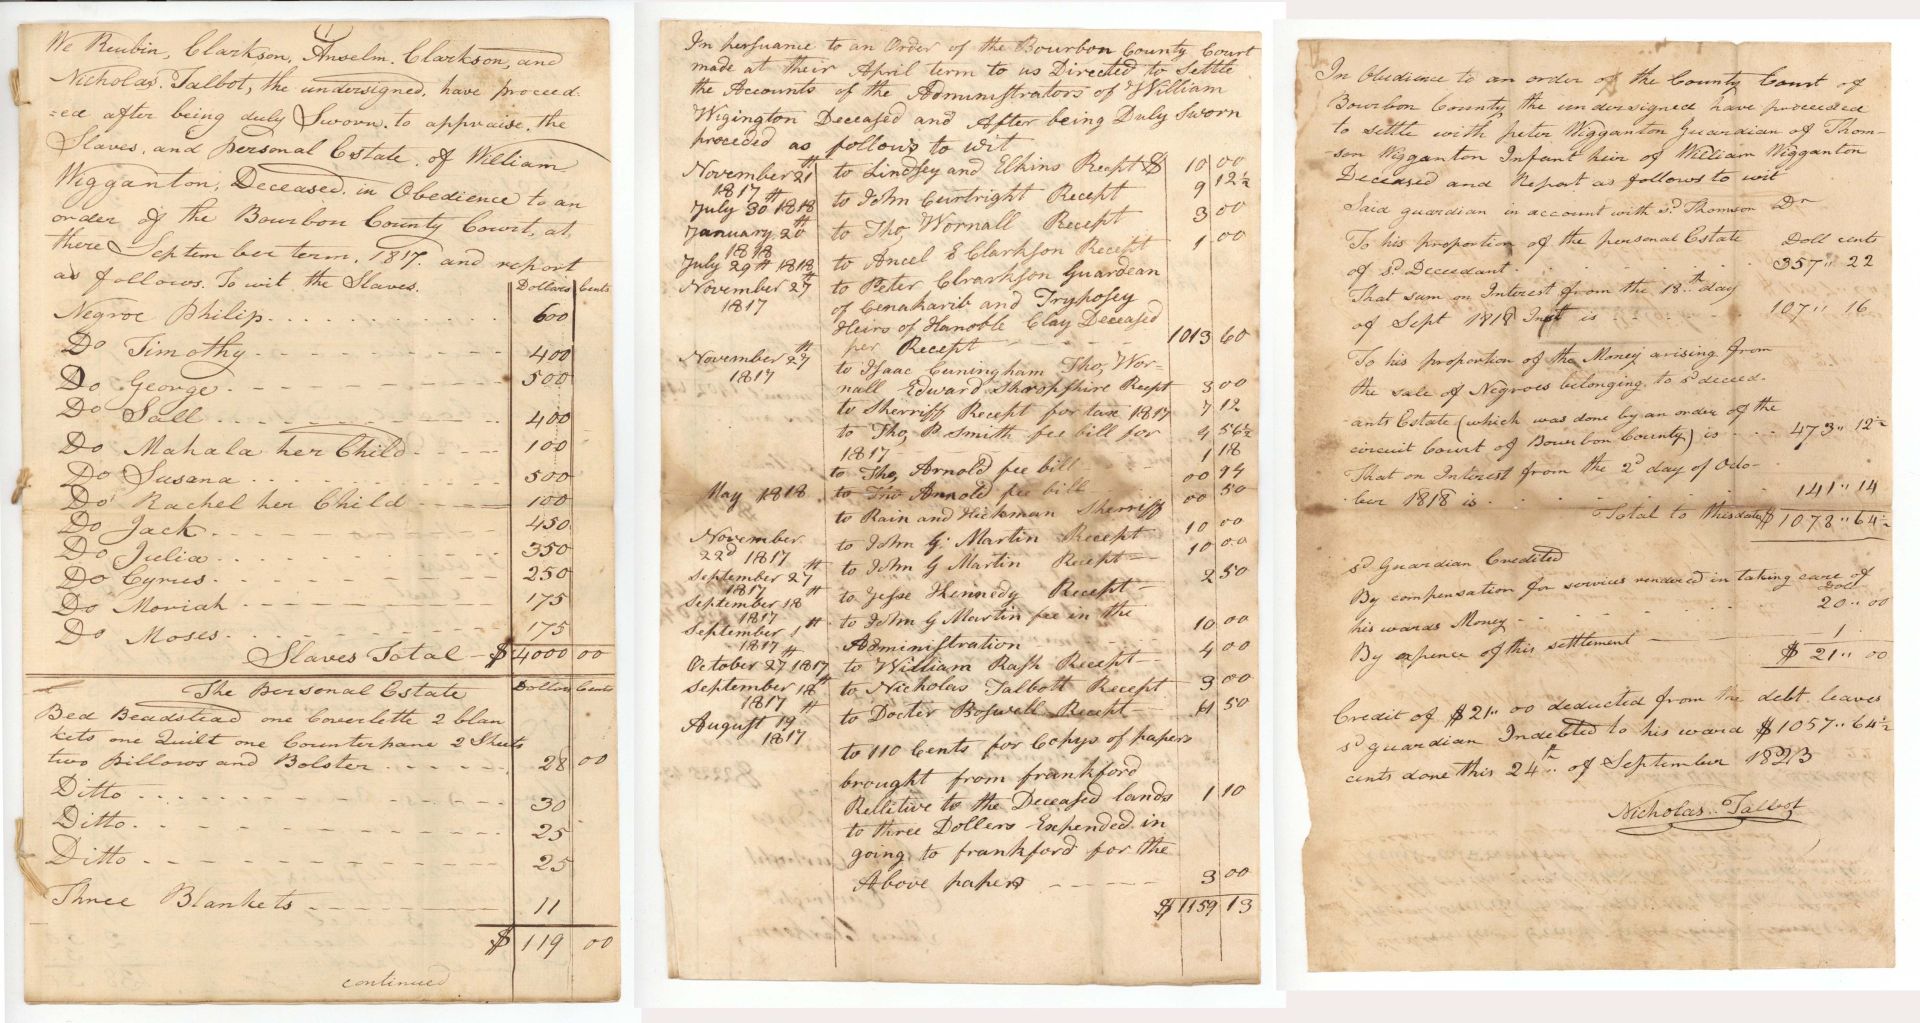 We Reubin, Clarkson, Anselm. Clarkson, and
Nicholas. Talbot, the undersigned. have proceed:
=ed after being duly Sworn. to appraise. the
Slaves. and personal Estate. of William
Wigganton; Deceased. in Obedience to an
order of the Bourbon County Court, at,
there September term. 1817. and report
as follows. To wit the Slaves.
Dollars Cents
Negroe Philip 600
Do Timothy 400
Do George 500
Do Sall 400
Do Mahala her Child 100
Do Susana 500
Do Rachel her Child 100
Do Jack 450
Do Julia 350
Do Cyrus 250
Do Moriah 175
Do Moses 175
Slaves Total $ 4000 00
The Personal Estate Dollars Cents
Bed Beadstead one Coverlette 2 blan
kets one Quilt one Counterpane 2 Sheets
two pillows and Bolster 28 00
Ditto 30
Ditto 25
Ditto 25
Three Blankets 11
$ 119 00
continued
In persuance to an Order of the Bourbon County Court
made at their April term to us Directed to Settle
the Accounts of the Administrators of William
Wigington Deceased and After being Duly Sworn
proceded as follows to wit
November 21th 1817 to Lindsey and Elkins Recept $ 10 00
July 30th 1818 to John Curtright Recept 9 12½
January 20th 1818 to Tho, Wornall Recept 3 00
July 29th 1818 to Ancel E Clarkson Recept 1 00
November 27th 1817 to Peter Clrarkson Guardean
of Cenakarib and Tryposey
Heirs of Hanoble Clay Deceased
per Recept 1013 60
November 27th 1817 to Isaac Cuningham Tho, Wor=
nall Edward Shropshire Recept 3 00
to Sherriff Recept for tax 1817 7 12
to Tho, P. Smith fee bill for 4 56½
1817 1 18
to Tho, Arnold fee bill 00 94
May 1818 to Tho Arnold fee bill 00 50
to Rain and Hickman Sherriff
November 22d 1817 to John G. Martin Recept 10 00
September 27th 1817 to John G Martin Recept 10 00
September 18th 1817 to Jesse Kennedy Recept 2 50
September 1th 1817 to John G Martin fee in the
Administration 10 00
October 27th 1817 to William Rash Recept 4 00
September 18th 1817 to Nicholas Talbott Recept 3 00
August 19th 1817 to Docter Boswell Recept 50
to 110 Cents for Copys of papers
brought from frankford
Rellitive to the Deceased lands 1 10
to three Dollers Expended in
going to frankford for the
Above papers 3 00
$ 1159 13
In Obudience to an order of the County Court of
Bourbon County the undersigned have proceeded
to settle with peter Wigganton Guardian of Thom-
-son Wigganton Infant heir of William Wigganton
Deceased and Report as follows to wit
Said guardian in account with sd. Thomson Dr
To his proportion of the personal Estate Doll cents
of sd Decedant 357" 22
That sum on Interest from the 18th day
of Sept 1818 Inst is 107" 16
To his proportion of the Money arising from
the sale of Negroes belonging to sd deced-
-ants Estate (which was done by an order of the
circuit Court of Bourbon County) is 473" 12½
That on Interest from the 2d day of Octo-
-ber 1818 is 141" 14
Total to this date $ 1078" 64½
sd Guardian Credited
By compensation for services rendered in taking care of
his wards Money Doll 20" 00
By expence of this settlement 1
$ 21" 00
Credit of $21" 00 deducted from the debt leaves
sd guardian Indebted to his ward $1057" 64½
cents done this 24th of September 1823
Nicholas. Talbot